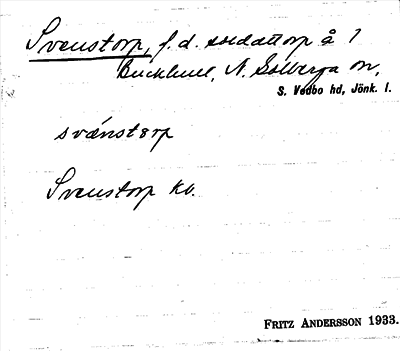 Svenstorp, f. d. soldattorp å 1
Buckhult, N. Solberga sn,
S. Vedbo hd, Jönk. l.
svǽnstɐrp
Svenstorp kb.
FRITZ ANDERSSON 1933.